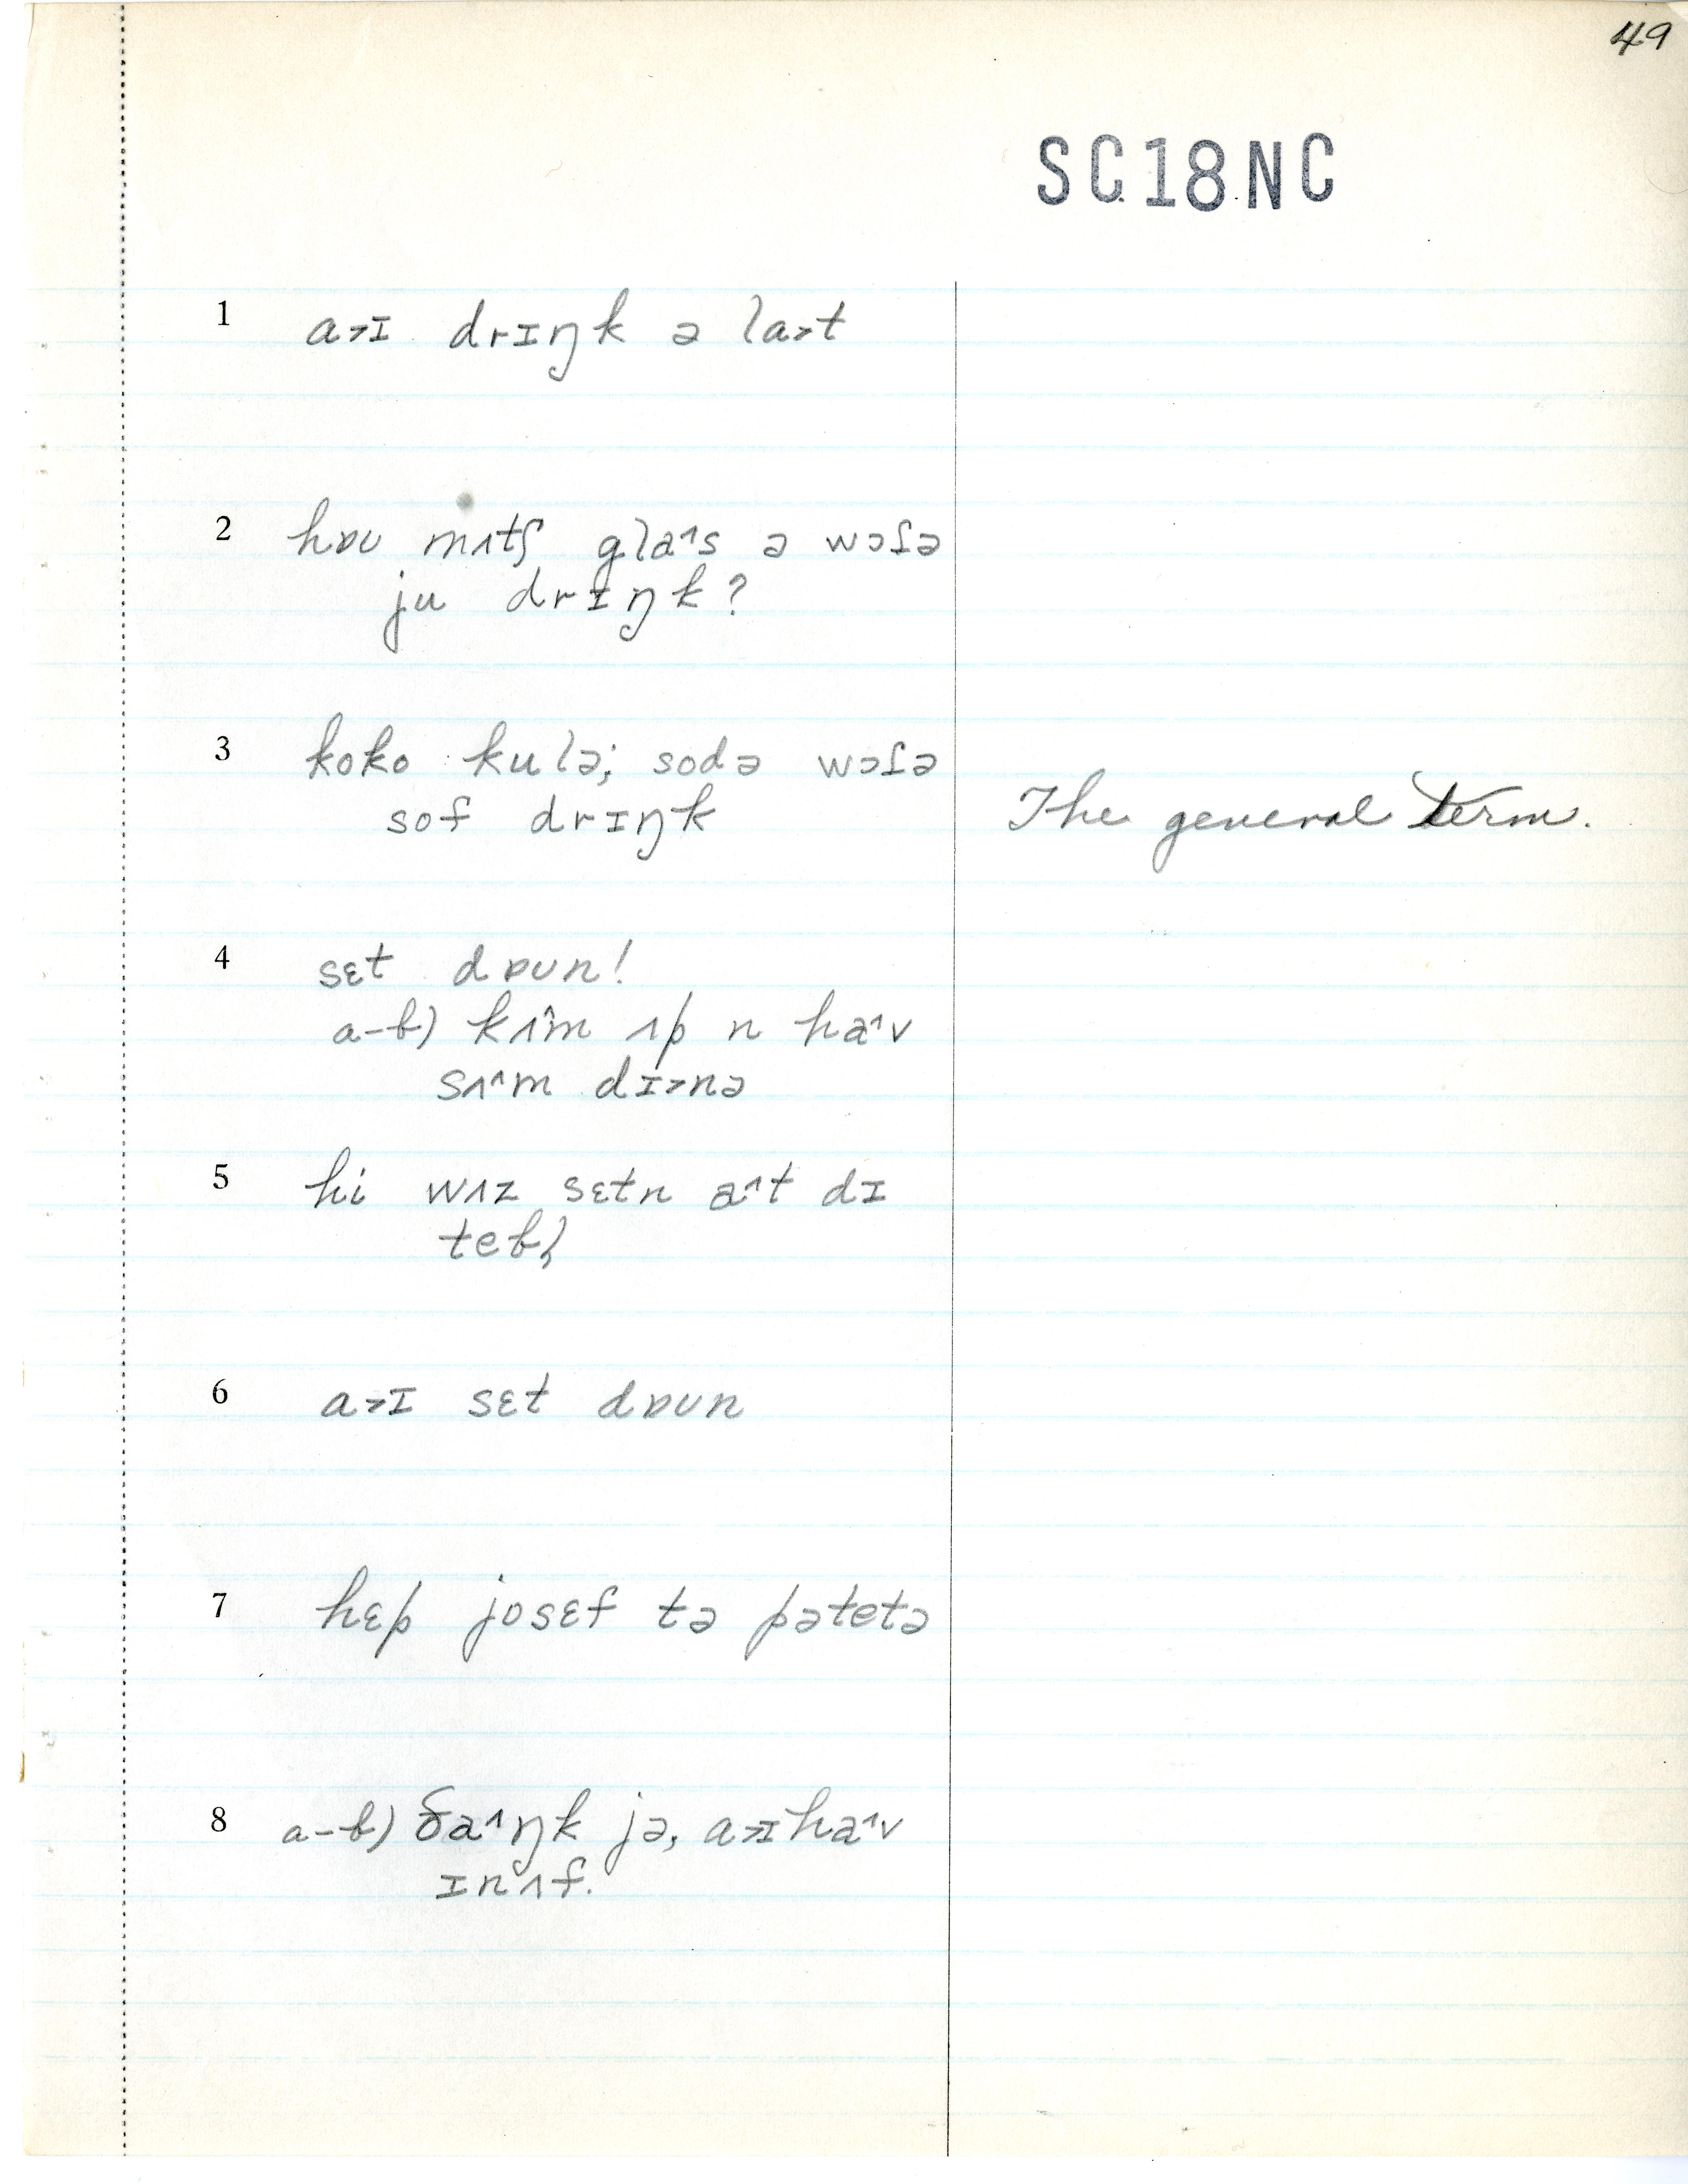 49
SC18NC
1 a˃ɪ drɪŋk ə la˃t
2 hɒʊ mʌtʃ gla˄s ə wɔɾə
ju drɪŋk?
3 koko kulə; sodə wɔɾə
sof drɪŋk The general term.
4 sɛt dɒʊn!
a-b) kʌ̂m ʌp n ha˄v
sʌ˄m dɪ˃nə
5 hi wʌz sɛtn a˄t dɪ
tebl̩
6 a˃ɪ sɛt dɒʊn
7 hɛp josɛf tə pətetə
8 a-b) ða˄ŋk jə, a˃ɪ ha˄v
ɪnʌf.